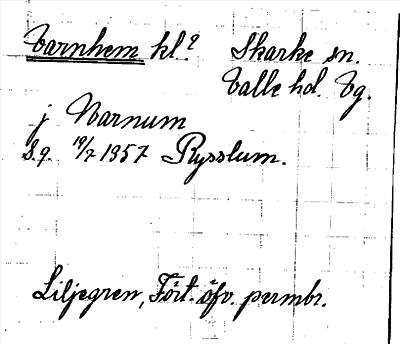 Varnhem kl. Skarke sn.
Valle hd. Vg.
j Warnum
S.q. 19/7 1357 Rysslum.
Liljegren, Fört. öfv. permbr.